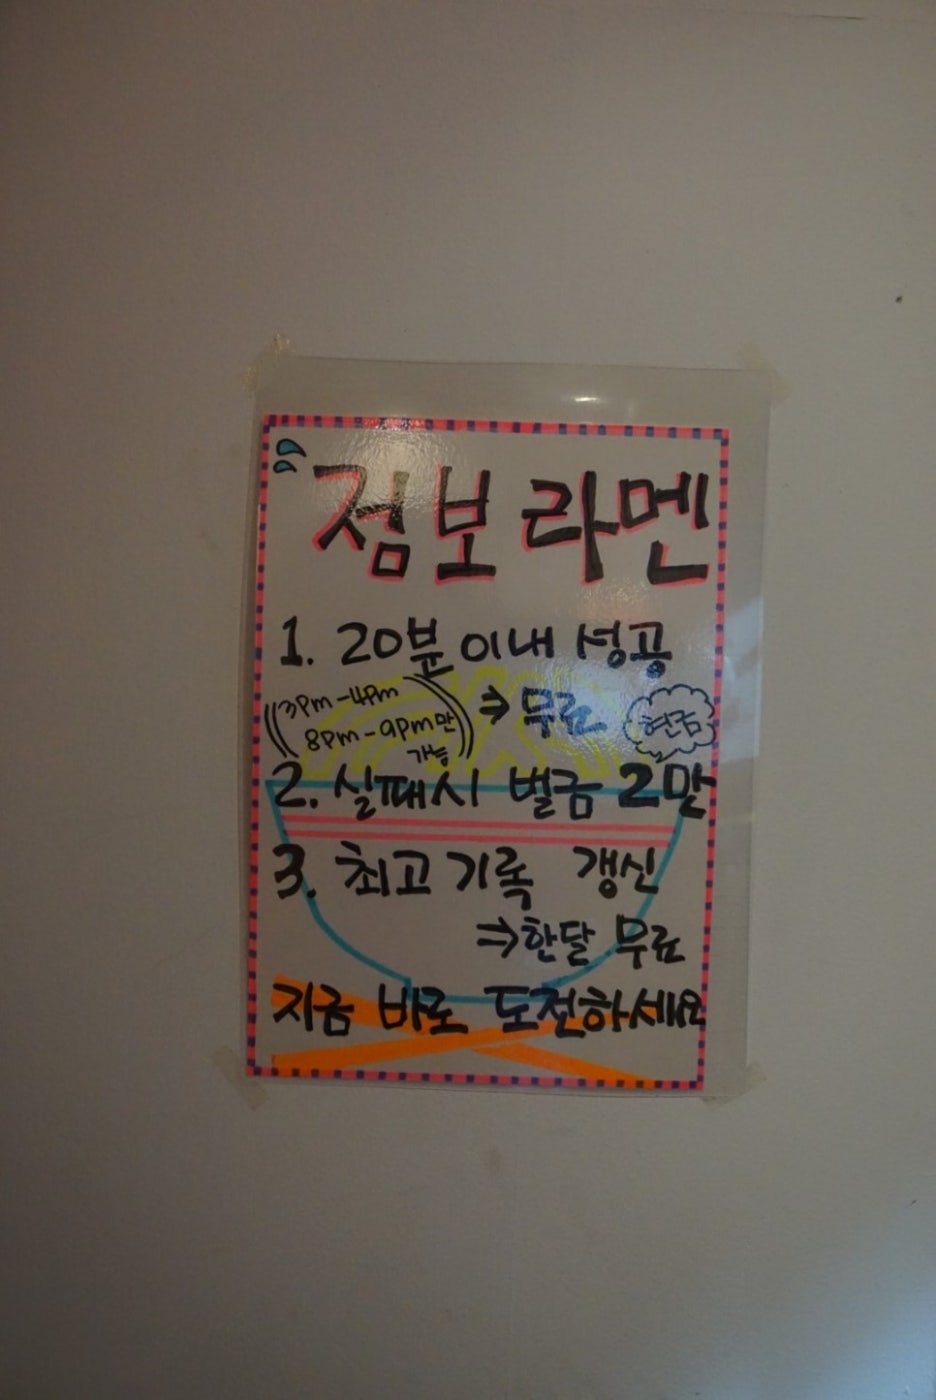 점보라멘
1. 20분이내 성공
(3pm-4pm
8pm-9pm만
가능)
⇒ 무료
현금
2. 실패시 벌금 2만
3. 최고 기록 갱신
⇒ 한달 무료
지금 바로 도전하세요